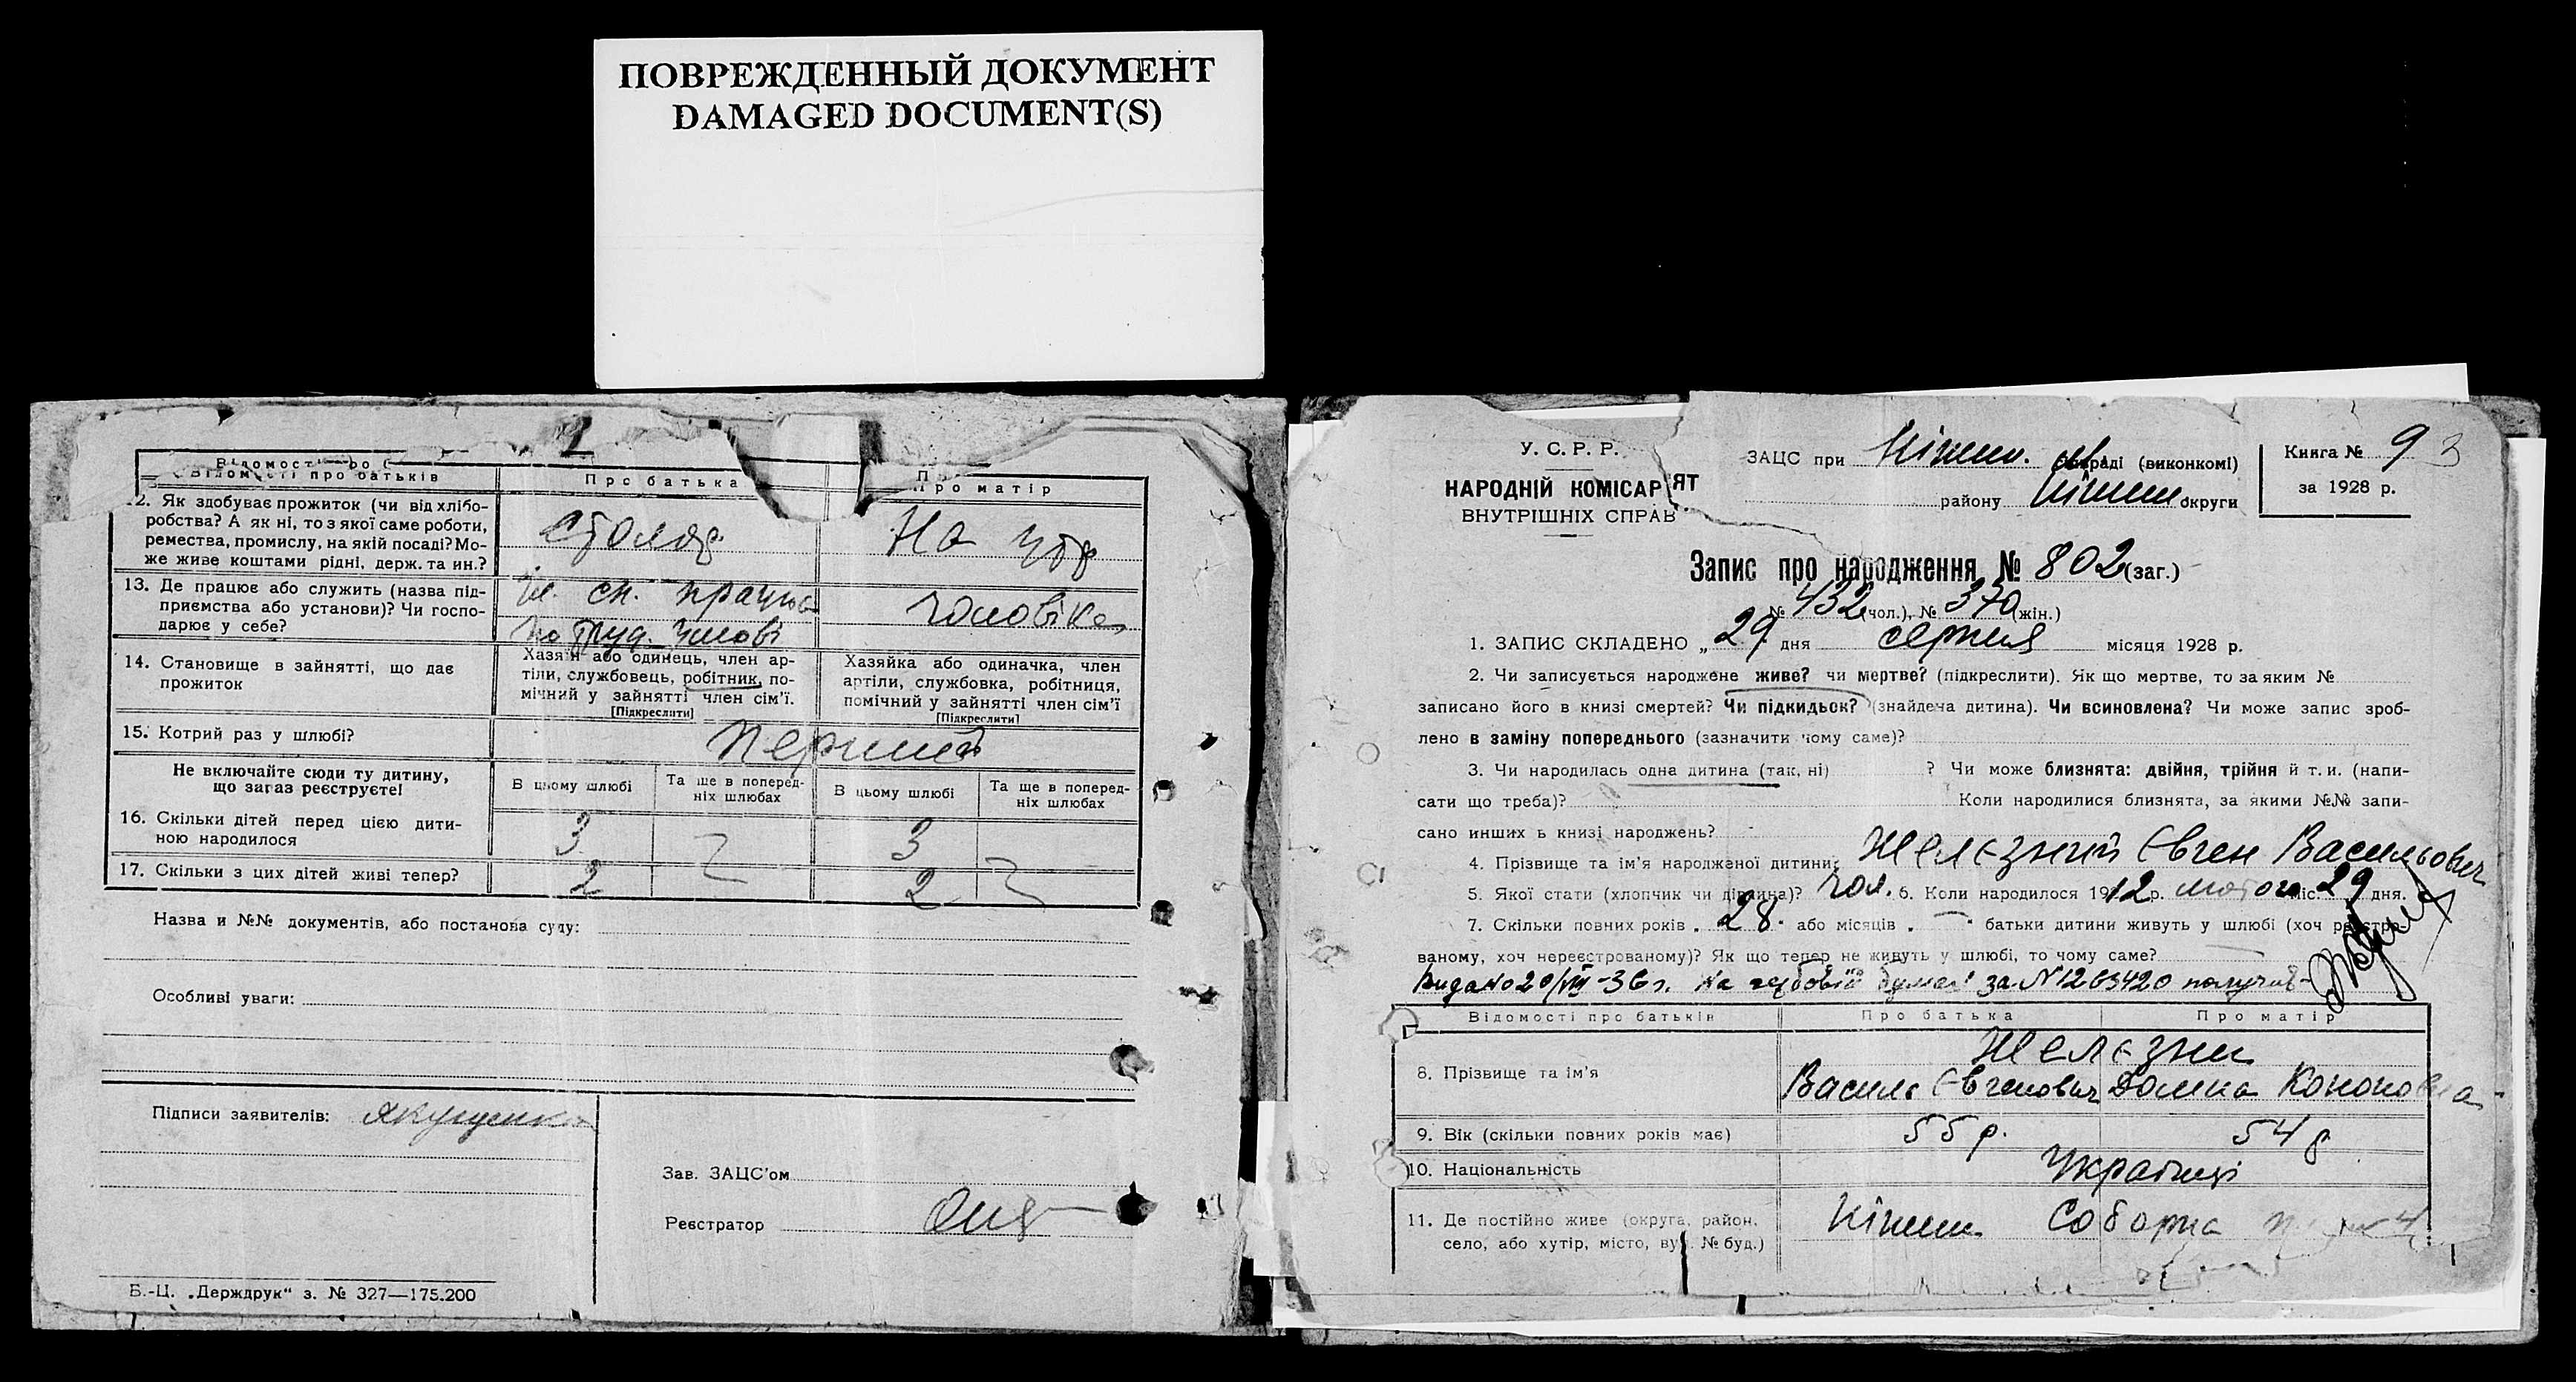 ПОВРЕЖДЕННЫЙ ДОКУМЕНТ
DAMAGED DOCUMENT(S)
2
Відомості про батьків
Про батька
Про матір
12. Як здобуває прожиток (чи від хлібо-
робства? А як ні, то з якої саме роботи,
ремества, промислу, на якій посаді? Мо-
же живе коштами рідні, держ. та ин.?
Столяр
На утр
13. Де працює або служить (назва під-
приємства або установи)? Чи госпо-
дарює у себе?
сп. працює
по труд. умові
чоловіка
14. Становище в зайнятті, що дає
прожиток
Хазяїн або одинець, член ар-
тіли, службовець, робітник, по-
мічний у зайнятті член сім'ї.
[Підкреслити]
Хазяйка або одиначка, член
артіли, службовка, робітниця,
помічний у зайнятті член сім'ї
[Підкреслити]
15. Котрий раз у шлюбі?
Перший
Не включайте сюди ту дитину,
що зараз реєструєте!
В цьому шлюбі
Та ще в поперед-
ніх шлюбах
В цьому шлюбі
Та ще в поперед-
ніх шлюбах
16. Скільки дітей перед цією дити-
ною народилося
3
3
17. Скільки з цих дітей живі тепер?
2
2
Назва и №№ документів, або постанова суду:
Особливі уваги:
Підписи заявителів:
Зав. ЗАЦС'ом
Реєстратор
Б.-Ц. „Держдрук“ з. № 327—175.200
У. С. Р. Р.
НАРОДНІЙ КОМІСАРІЯТ
ВНУТРІШНІХ СПРАВ
ЗАЦС при
раді (виконкомі)
району
округи
Книга № 93
за 1928 р.
Запис про народження № 802 (заг.)
№ 432 (чол.), № 370 (жін.)
1. ЗАПИС СКЛАДЕНО „29 дня серпня місяця 1928 р.
2. Чи записується народжене живе? чи мертве? (підкреслити). Як що мертве, то за яким №
записано його в книзі смертей? Чи підкидьок? (знайдена дитина). Чи всиновлена? Чи може запис зроб-
лено в заміну попереднього (зазначити чому саме)?
3. Чи народилась одна дитина (так, ні) ? Чи може близнята: двійня, трійня й т. и. (напи-
сати що треба)? Коли народилися близнята, за якими №№ запи-
сано инших в книзі народжень?
4. Прізвище та ім'я народженої дитини: Желєзний Євген Васильович
5. Якої стати (хлопчик чи дівчина)? чол. 6. Коли народилося 1912 р. лютого міс. 29 дня.
7. Скільки повних років 28 або місяців — батьки дитини живуть у шлюбі (хоч реєстро-
ваному, хоч нереєстрованому)? Як що тепер не живуть у шлюбі, то чому саме?
Видано 20/VIII-36 г. На гербовій бумазі за №1263420 получив
Відомості про батьків
Про батька
Про матір
8. Прізвище та ім'я
Желєзни
Василь Євгенович
Домна Кононовна
9. Вік (скільки повних років має)
55 р.
54 р
10. Національність
Українці
11. Де постійно живе (округа, район,
село, або хутір, місто, вул. № буд.)
Соборна